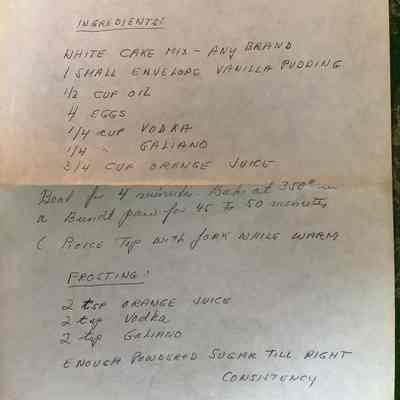 INGREDIENTS:
WHITE CAKE MIX - ANY BRAND
1 SMALL ENVELOPE VANILLA PUDDING
1/2 CUP OIL
4 EGGS
1/4 CUP VODKA
1/4 " GALIANO
3/4 CUP ORANGE JUICE
Beat for 4 minutes Bake at 350° in
a Bundt pan for 45 to 50 minutes
( Peirce Top with fork while warm
FROSTING:
2 tsp ORANGE JUICE
2 tsp Vodka
2 tsp GALIANO
ENOUGH POWDERED SUGAR TILL RIGHT
CONSISTENCY